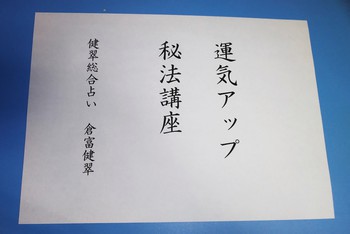 運気アップ
秘法講座
健翠総合占い 倉富健翠